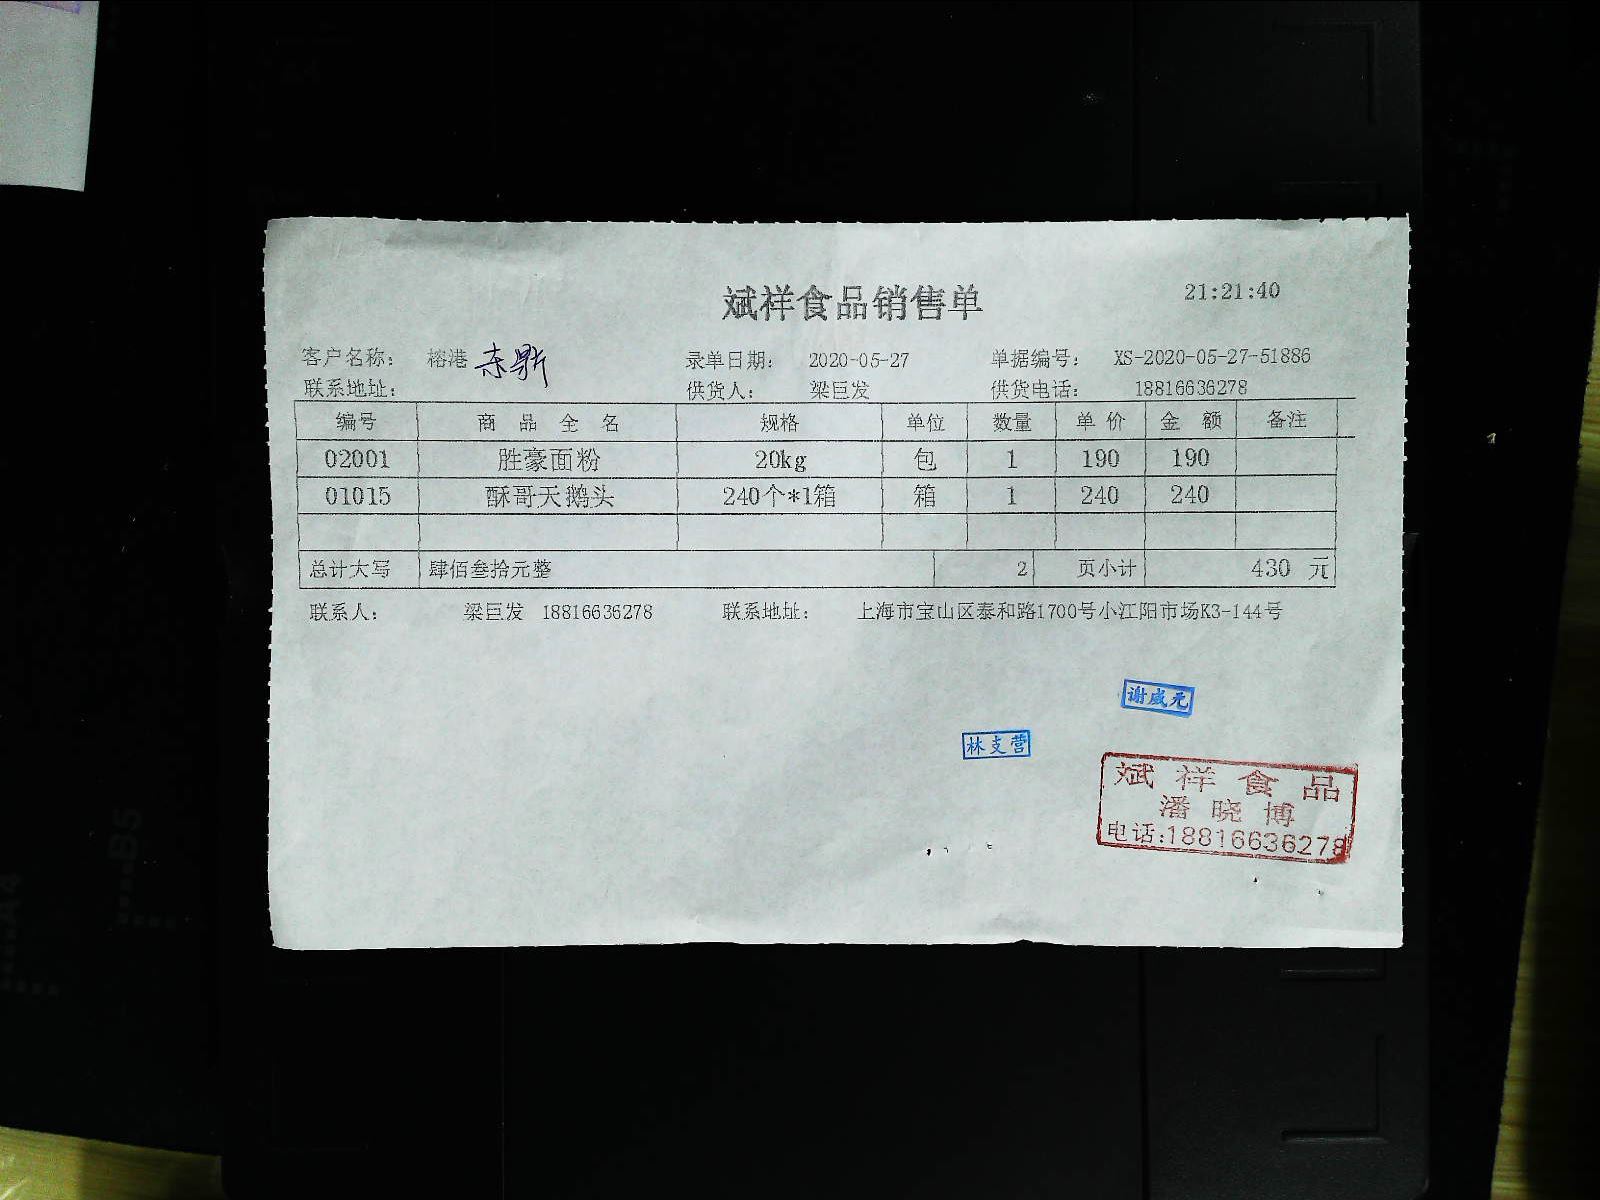 斌祥食品销售单 21:21:40
客户名称： 榕港 录单日期： 2020-05-27 单据编号： XS-2020-05-27-51886
联系地址： 供货人： 梁巨发 供货电话： 18816636278
编号 商品全名 规格 单位 数量 单价 金额 备注
02001 胜豪面粉 20kg 包 1 190 190
01015 酥哥天鹅头 240个*1箱 箱 1 240 240
总计大写 肆佰叁拾元整 2 页小计 430 元
联系人： 梁巨发 18816636278 联系地址： 上海市宝山区泰和路1700号小江阳市场K3-144号
谢威元
林支营
斌祥食品
潘晓博
电话:18816636278
B5
A4